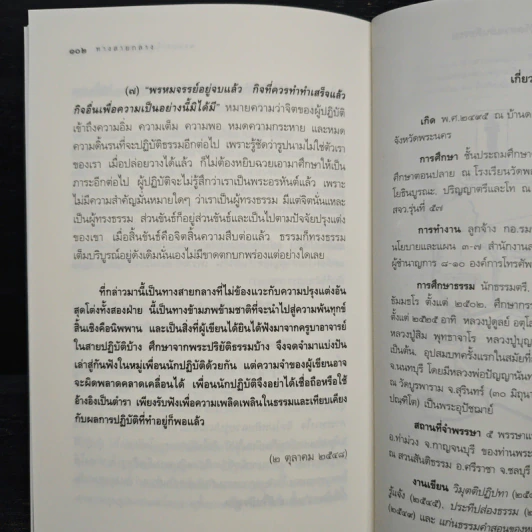 ๑๐๒ ทางสายกลาง
(๗) "พรหมจรรย์อยู่จบแล้ว กิจที่ควรทำทำเสร็จแล้ว
กิจอื่นเพื่อความเป็นอย่างนี้มิได้มี" หมายความว่าจิตของผู้ปฏิบัติ
เข้าถึงความอิ่ม ความเต็ม ความพอ หมดความกระหาย และหมด
ความดิ้นรนที่จะปฏิบัติธรรมอีกต่อไป เพราะรู้ชัดว่ารูปนามไม่ใช่ตัวเรา
ของเรา เมื่อปล่อยวางได้แล้ว ก็ไม่ต้องหยิบฉวยเอามาศึกษาให้เป็น
ภาระอีกต่อไป ผู้ปฏิบัติจะไม่รู้สึกว่าเราเป็นพระอรหันต์แล้ว เพราะ
ไม่มีความสำคัญมั่นหมายใดๆ ว่าเราเป็นผู้ทรงธรรม มีแต่จิตนั่นแหละ
เป็นผู้ทรงธรรม ส่วนขันธ์ก็อยู่ส่วนขันธ์และเป็นไปตามปัจจัยปรุงแต่ง
ของเขา เมื่อสิ้นขันธ์คือจิตสิ้นความสืบต่อแล้ว ธรรมก็ทรงธรรม
เต็มบริบูรณ์อยู่ดังเดิมนั่นเองไม่มีขาดตกบกพร่องแต่อย่างใดเลย
ที่กล่าวมานี้เป็นทางสายกลางที่ไม่ข้องแวะกับความปรุงแต่งอัน
สุดโต่งทั้งสองฝ่าย นี้เป็นทางข้ามภพข้ามชาติที่จะนำไปสู่ความพ้นทุกข์
สิ้นเชิงคือนิพพาน และเป็นสิ่งที่ผู้เขียนได้ยินได้ฟังมาจากครูบาอาจารย์
ในสายปฏิบัติบ้าง ศึกษาจากพระปริยัติธรรมบ้าง จึงจดจำมาแบ่งปัน
เล่าสู่กันฟังในหมู่เพื่อนนักปฏิบัติด้วยกัน แต่ความจำของผู้เขียนอาจ
จะผิดพลาดคลาดเคลื่อนได้ เพื่อนนักปฏิบัติจึงอย่าได้เชื่อถือหรือใช้
อ้างอิงเป็นตำรา เพียงรับฟังเพื่อความเพลิดเพลินในธรรมและเทียบเคียง
กับผลการปฏิบัติที่ทำอยู่ก็พอแล้ว
(๒ ตุลาคม ๒๕๔๘)
เกี่ยว
เกิด พ.ศ.๒๔๙๕ ณ บ้านด
จังหวัดพระนคร
การศึกษา ชั้นประถมศึกษา
ศึกษาตอนปลาย ณ โรงเรียนวัดพล
โยธินบูรณะ, ปริญญาตรีและโท ณ
สจว.รุ่นที่ ๕๗
การทำงาน ลูกจ้าง กอ.รม
นโยบายและแผน ๓-๗ สำนักงานส
ผู้ชำนาญการ ๘-๑๐ องค์การโทรศัพ
การศึกษาธรรม นักธรรมตรี,
ธัมมธโร ตั้งแต่ ๒๕๐๒, ศึกษากรร
ตั้งแต่ ๒๕๒๕ อาทิ หลวงปู่ดูลย์ อตุโ
หลวงปู่สิม พุทธาจาโร หลวงปู่บุญ
เป็นต้น, อุปสมบทครั้งแรกในสมัยที่
จ.นนทบุรี โดยมีหลวงพ่อปัญญานันท
ณ วัดบูรพาราม จ.สุรินทร์ (๓๐ มิถุน
ปณฺฑิโต) เป็นพระอุปัชฌาย์
สถานที่จำพรรษา ๕ พรรษาแ
อ.ท่าม่วง จ.กาญจนบุรี ของท่านพระ
ณ สวนสันติธรรม อ.ศรีราชา จ.ชลบุรี
งานเขียน วิมุตติปฏิปทา (๒๕
รู้แจ้ง (๒๕๔๕), ประทีปส่องธรรม (๒
(๒๕๔๙) และ แก่นธรรมคำสอนของพ